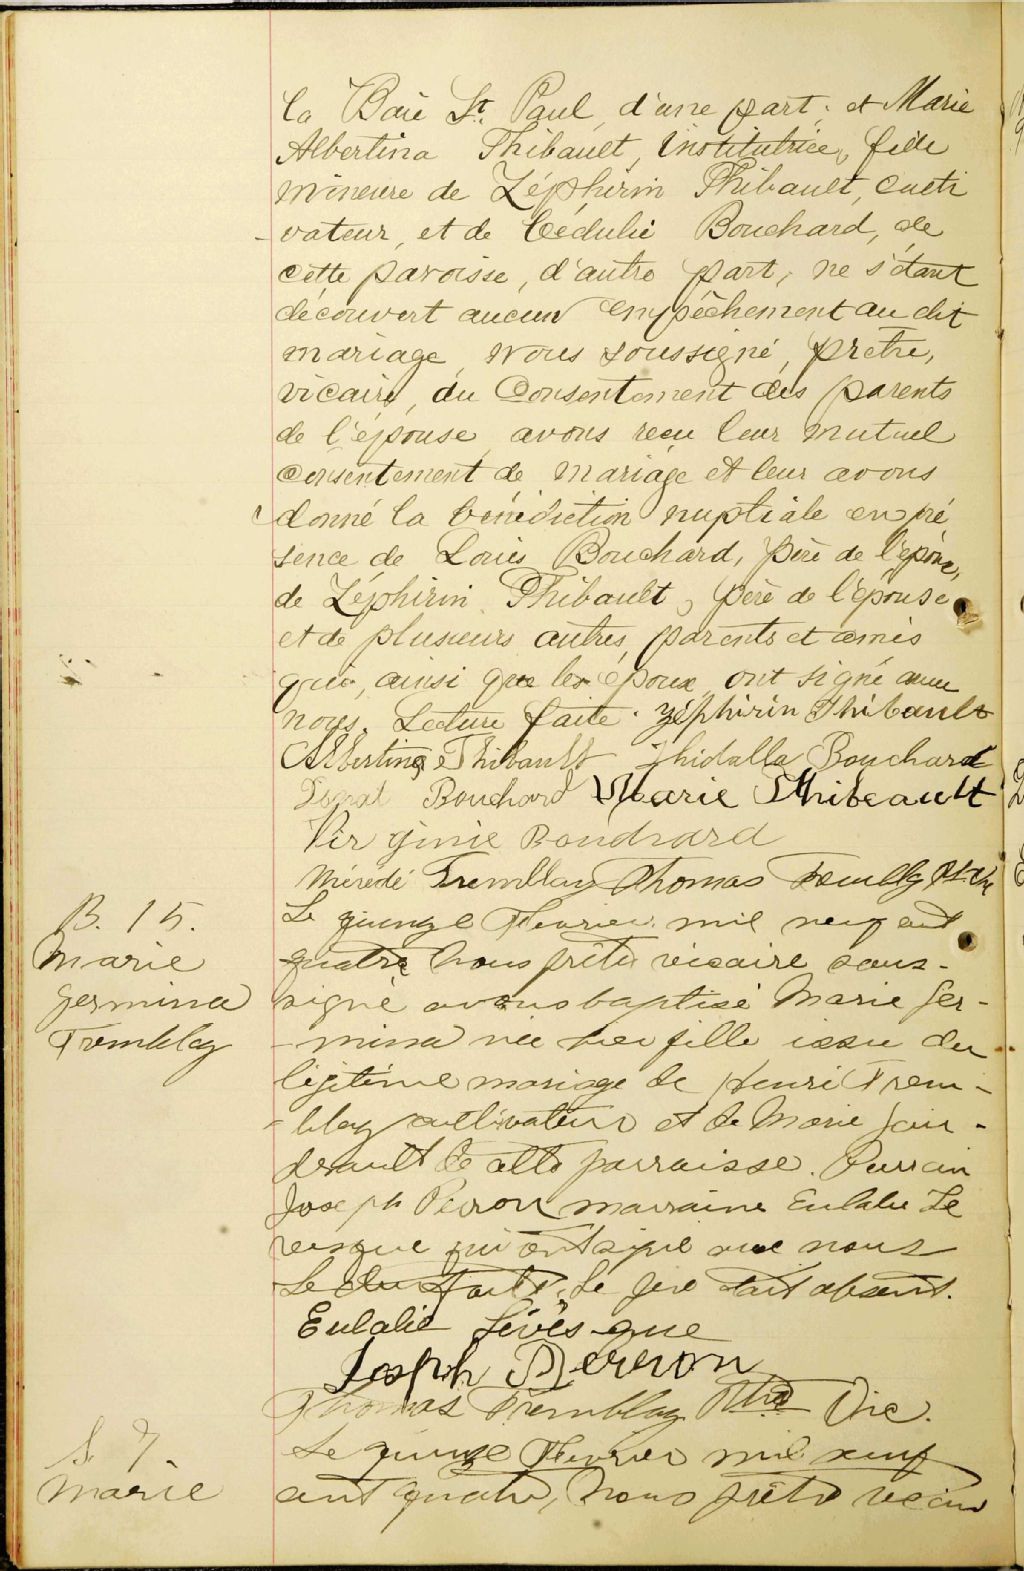 la Baie St. Paul, d'une part; et Marie
Albertina Thibault, institutrice, fille
mineure de Zéphirin Thibault, culti
-vateur, et de Cédulie Bouchard, de
cette paroisse, d'autre part; ne s'étant
découvert aucun empêchement au dit
mariage, Nous soussigné, prêtre,
vicaire, du consentement des parents
de l'épouse, avons reçu leur mutuel
consentement de mariage et leur avons
donné la bénédiction nuptiale en pré
sence de Louis Bouchard, père de l'époux,
de Zéphirin Thibault, père de l'épouse
et de plusieurs autres parents et amis
qui, ainsi que les époux, ont signé avec
nous. Lecture faite. Zéphirin Thibault
Albertina Thibault Thidulla Bouchard
Bouchard Marie Thibeault
Virginie Boudrard
Mérédé Tremblay Thomas Tremblay Ptr. Vic
B. 15.
Marie
Germina
Tremblay
Le quinze Fevrier mil neuf cent
quatre nous prêtre vicaire sous-
signé avons baptisé Marie Ger-
-mina née hier fille issue du
légitime mariage de Henri Trem-
-blay cultivateur et de Marie Gau-
dreault de cette parraisse. Parrain
Joseph Perron marraine Eulalie Le
vesque qui ont signé avec nous
Lecture faite. Le père était absent.
Eulalie Lévèsque
Joseph Perron
Thomas Tremblay Ptre Vic.
S. 7.
Marie
Le quinze Fevrier mil neuf
cent quatre, Nous prêtre vicaire